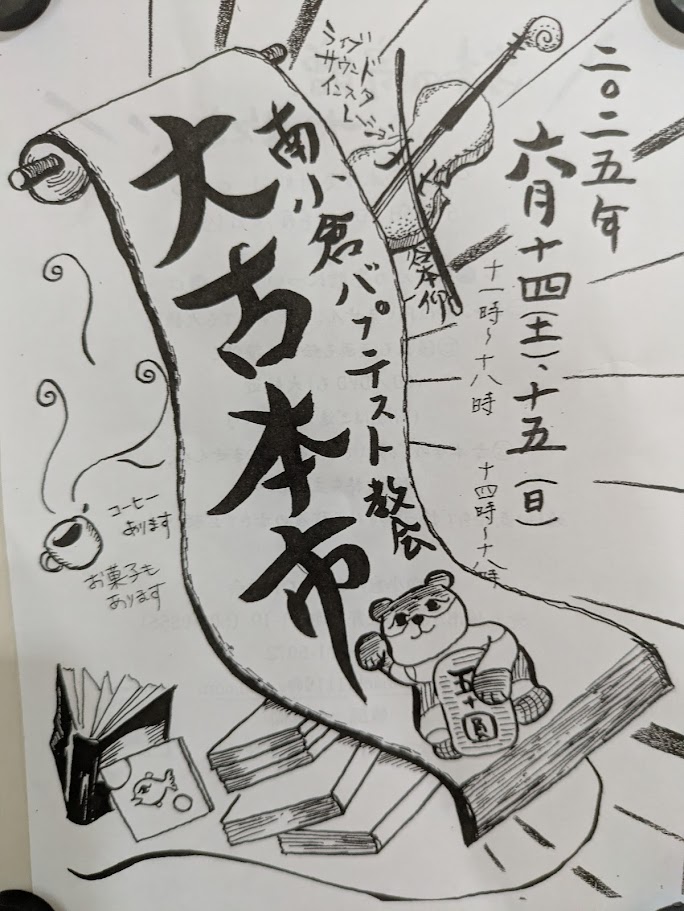 二〇二五年
六月十四(土)、十五(日)
十一時~十八時
十四時~十八時
ライブ
サウンド
谷本仰
南小倉バプテスト教会
大古本市
コーヒー
あります
お菓子も
あります
五十圓